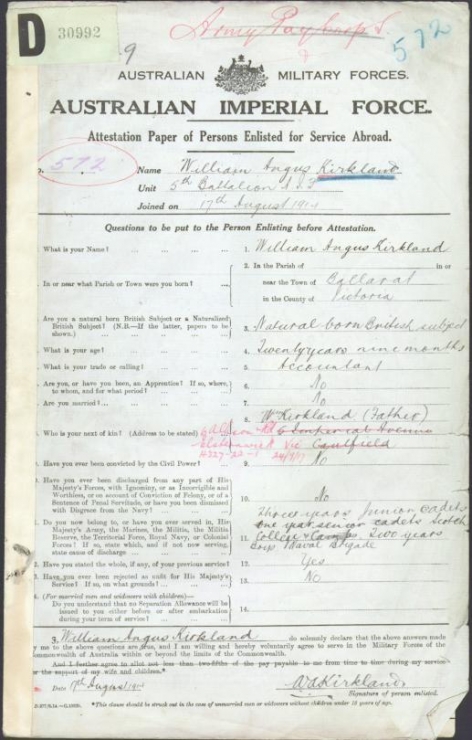 D 30992
Army Pay Corps
572
9
AUSTRALIAN MILITARY FORCES.
AUSTRALIAN IMPERIAL FORCE.
Attestation Paper of Persons Enlisted for Service Abroad.
572
Name William Angus Kirkland
Unit 5th Battalion A.I.F
Joined on 17th August 1914
Questions to be put to the Person Enlisting before Attestation.
1. What is your Name? ... 1. William Angus Kirkland
2. In the Parish of in or
In or near what Parish or Town were you born? near the Town of Ballarat
in the County of Victoria
Are you a natural born British Subject or a Naturalized
British Subject? (N.B.—If the latter, papers to be
shown.) 3. Natural born British subject
What is your age? 4. Twenty years nine months
What is your trade or calling? 5. Accountant
Are you, or have you been, an Apprentice? If so, where,
to whom, and for what period? 6. No
Are you married? 7. No
8. W Kirkland (Father)
Who is your next of kin? (Address to be stated) 6 Imperial Avenue
Caulfield
Have you ever been convicted by the Civil Power? 9. No
Have you ever been discharged from any part of His
Majesty's Forces, with Ignominy, or as Incorrigible and
Worthless, or on account of Conviction of Felony, or of a
Sentence of Penal Servitude, or have you been dismissed
with Disgrace from the Navy? 10. No
Three years Junior Cadets
Do you now belong to, or have you ever served in, His
Majesty's Army, the Marines, the Militia, the Militia
Reserve, the Territorial Force, Royal Navy, or Colonial
Forces? If so, state which, and if not now serving,
state cause of discharge 11. One year senior cadets Scotch
College & Two years
Corps Naval Brigade
Have you stated the whole, if any, of your previous service? 12. Yes
Have you ever been rejected as unfit for His Majesty's
Service? If so, on what grounds 13. No
(For married men and widowers with children)—
Do you understand that no Separation Allowance will be
issued to you either before or after embarkation
during your term of service? 14.
I, William Angus Kirkland do solemnly declare that the above answers made
by me to the above questions are true, and I am willing and hereby voluntarily agree to serve in the Military Forces of the
Commonwealth of Australia within or beyond the limits of the Commonwealth.
And I further agree to allot not less than two-fifths of the pay payable to me from time to time during my service
for the support of my wife and children.*
Date 17th August 1914 W A Kirkland
Signature of person enlisted.
*This clause should be struck out in the case of unmarried men or widowers without children under 18 years of age.